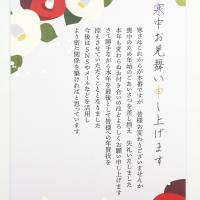 寒中お見舞い申し上げます
寒さはこれからが本番ですが 皆様お変わりございませんか
喪中のため年始のごあいさつを差し控え 失礼いたしました
本年も変わらぬお付き合いのほどよろしくお願い申し上げます
さて勝手ながら本年を最後として皆様への年賀状を
控えさせていただくこととなりました
今後はSNSやメールなどを活用し
より密に関係を築ければと思っています